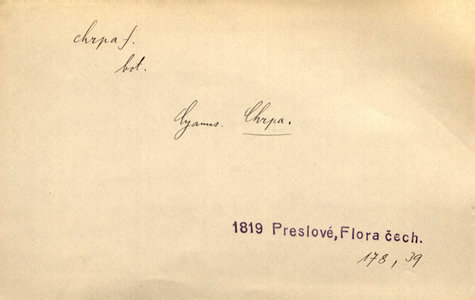 chrpa f.
bot.
Cyanus. Chrpa.
1819 Preslové, Flora čech.
178, 39